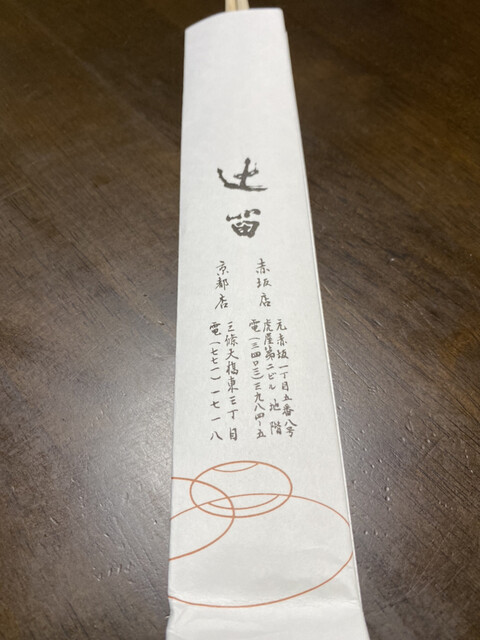 辻留
赤坂店
元赤坂一丁目五番八号
虎屋第二ビル 地階
電(三四〇三)三九八四〜五
京都店
三條大橋東三丁目
電(七七一)一七一八